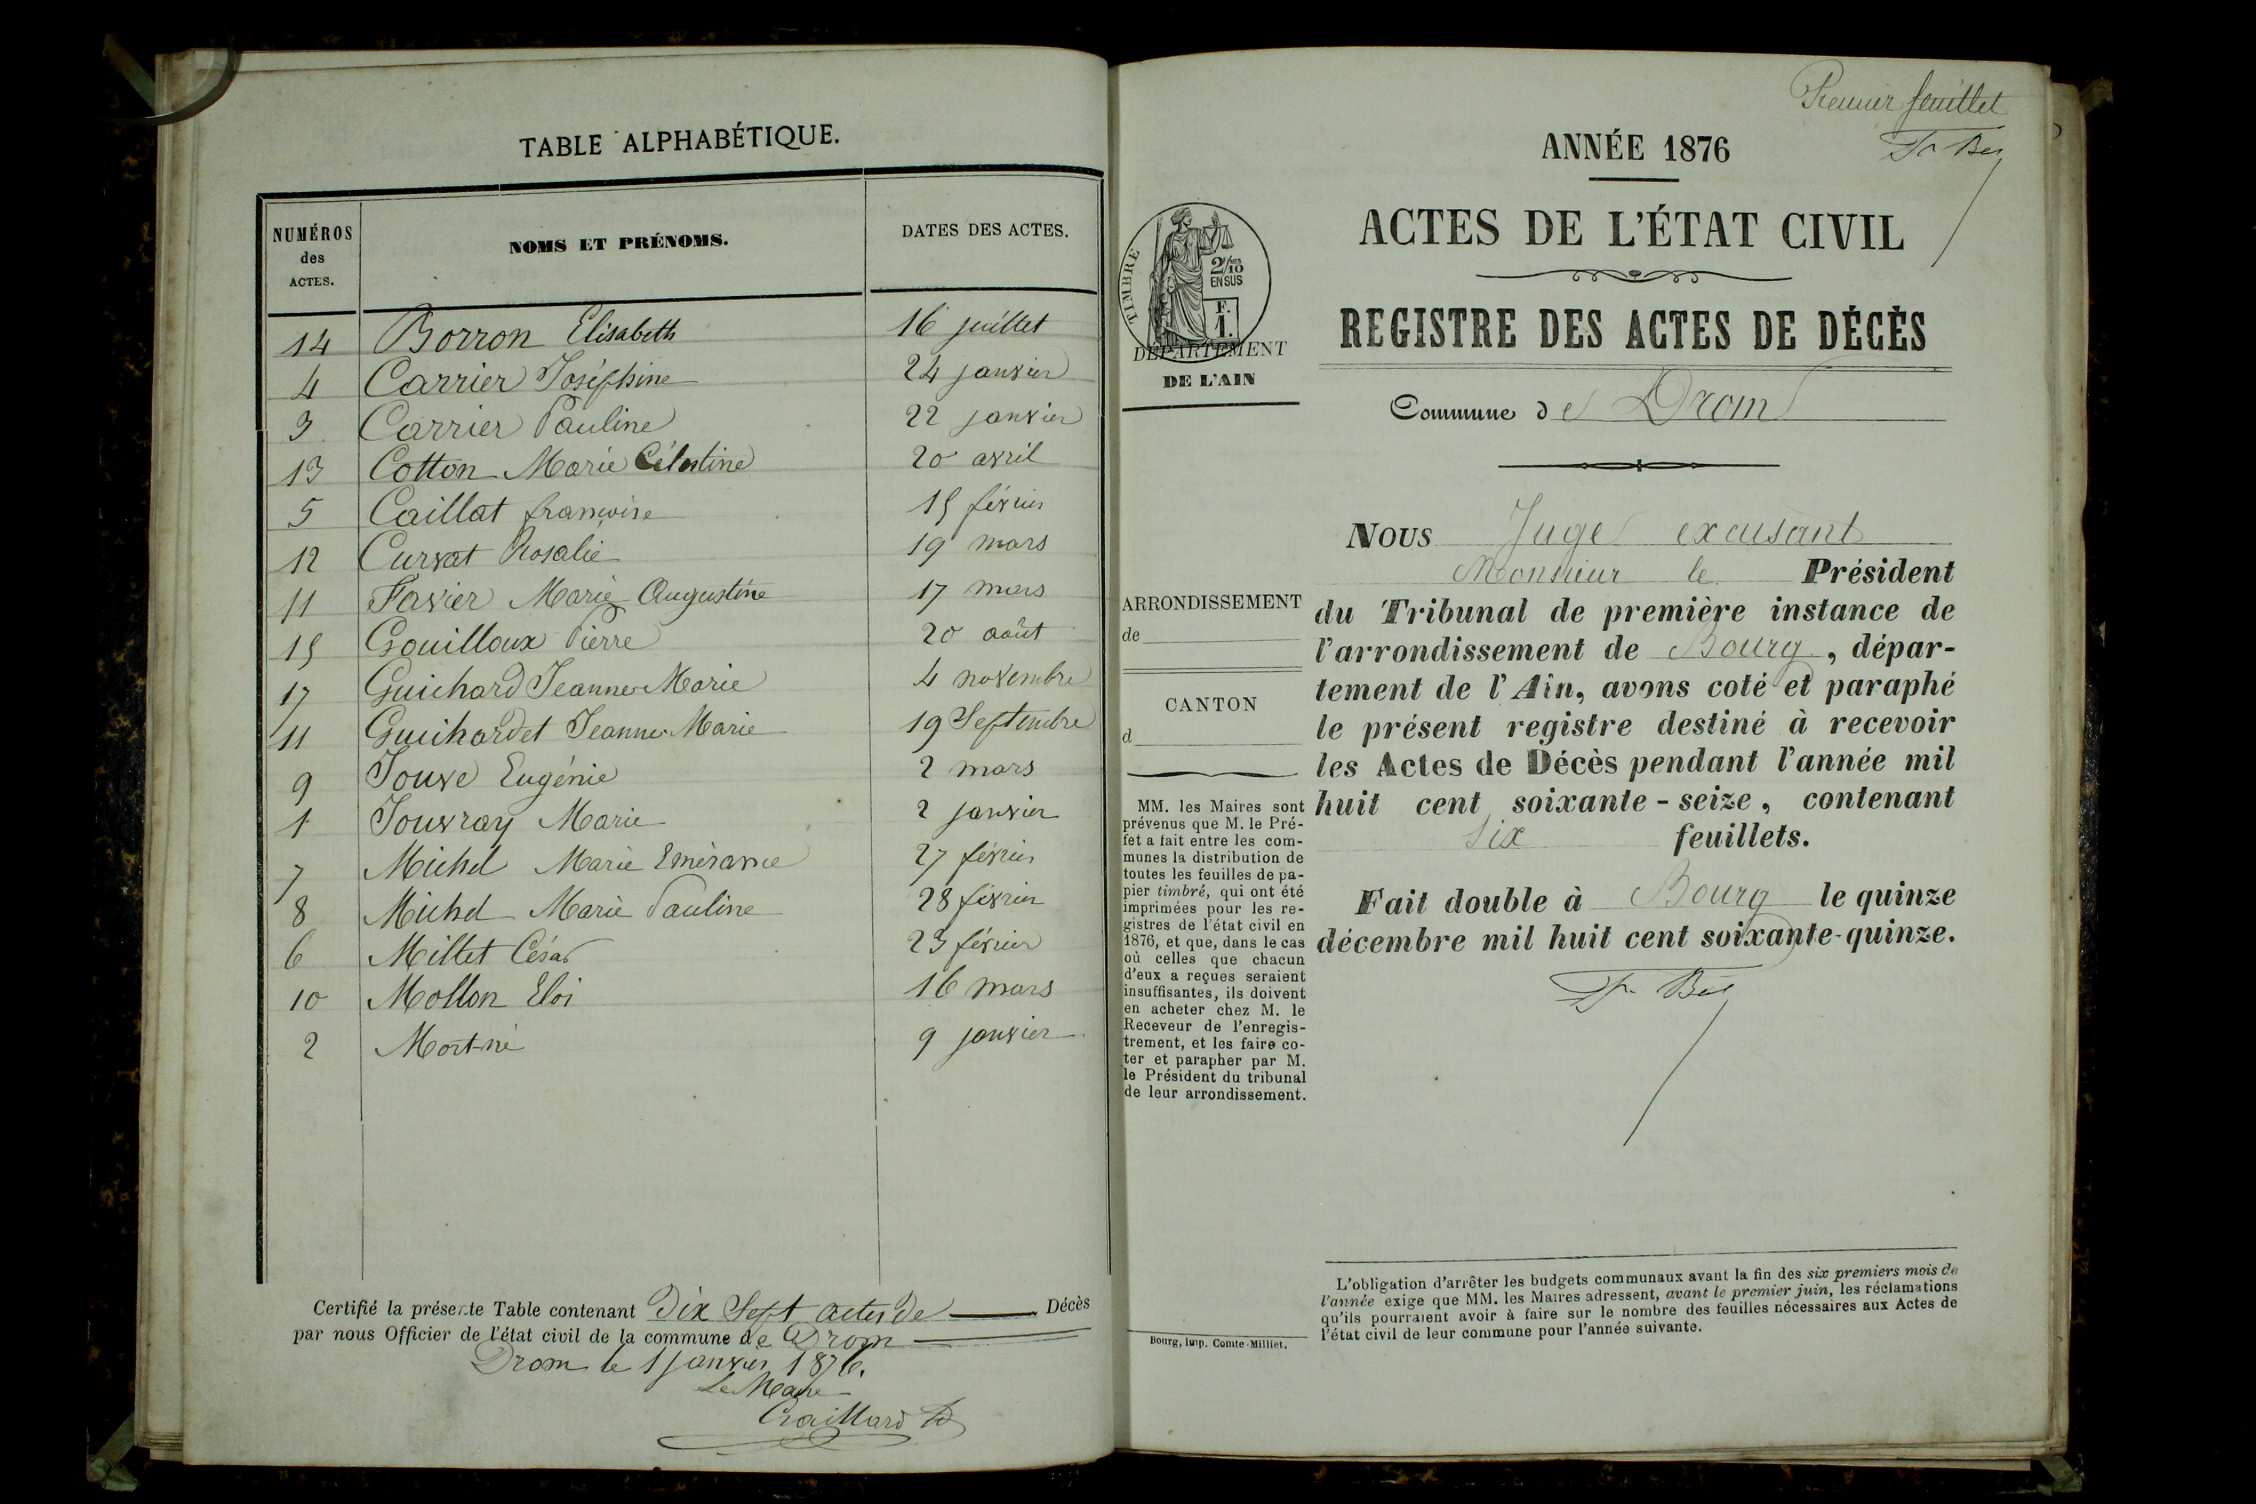 TABLE ALPHABÉTIQUE.
NUMÉROS des ACTES. NOMS ET PRÉNOMS. DATES DES ACTES.
14 Borron Elisabeth 16 juillet
4 Carrier Joséphine 24 janvier
3 Carrier Pauline 22 janvier
13 Cotton Marie Célestine 20 avril
5 Caillat françoise 15 février
12 Curvat Rosalie 19 mars
11 Favier Marie Augustine 17 mars
15 Gouilloux Pierre 20 août
17 Guichard Jeanne Marie 4 novembre
11 Guichardet Jeanne Marie 19 Septembre
9 Jouve Eugénie 2 mars
1 Jouvray Marie 2 janvier
7 Michel Marie 27 février
8 Michel Marie Pauline 28 février
6 Millet César 23 février
10 Mollon Eloi 16 mars
2 Mort-né 9 janvier
Certifié la présente Table contenant Dix Sept actes de Décès
par nous Officier de l'état civil de la commune de Drom
Drom le 1 janvier 1876.
Le Maire
Gaillard
Premier feuillet
ANNÉE 1876
ACTES DE L'ÉTAT CIVIL
REGISTRE DES ACTES DE DÉCÈS
Commune de Drom
TIMBRE
2/10
EN SUS
F.
1.
DÉPARTEMENT
DE L'AIN
ARRONDISSEMENT
de
CANTON
d
MM. les Maires sont
prévenus que M. le Pré-
fet a fait entre les com-
munes la distribution de
toutes les feuilles de pa-
pier timbré, qui ont été
imprimées pour les re-
gistres de l'état civil en
1876, et que, dans le cas
où celles que chacun
d'eux a reçues seraient
insuffisantes, ils doivent
en acheter chez M. le
Receveur de l'enregis-
trement, et les faire co-
ter et parapher par M.
le Président du tribunal
de leur arrondissement.
Bourg, imp. Comte-Milliet.
NOUS Juge excusant
Monsieur le Président
du Tribunal de première instance de
l'arrondissement de Bourg, dépar-
tement de l'Ain, avons coté et paraphé
le présent registre destiné à recevoir
les Actes de Décès pendant l'année mil
huit cent soixante-seize, contenant
six feuillets.
Fait double à Bourg le quinze
décembre mil huit cent soixante-quinze.
L'obligation d'arrêter les budgets communaux avant la fin des six premiers mois de
l'année exige que MM. les Maires adressent, avant le premier juin, les réclamations
qu'ils pourraient avoir à faire sur le nombre des feuilles nécessaires aux Actes de
l'état civil de leur commune pour l'année suivante.